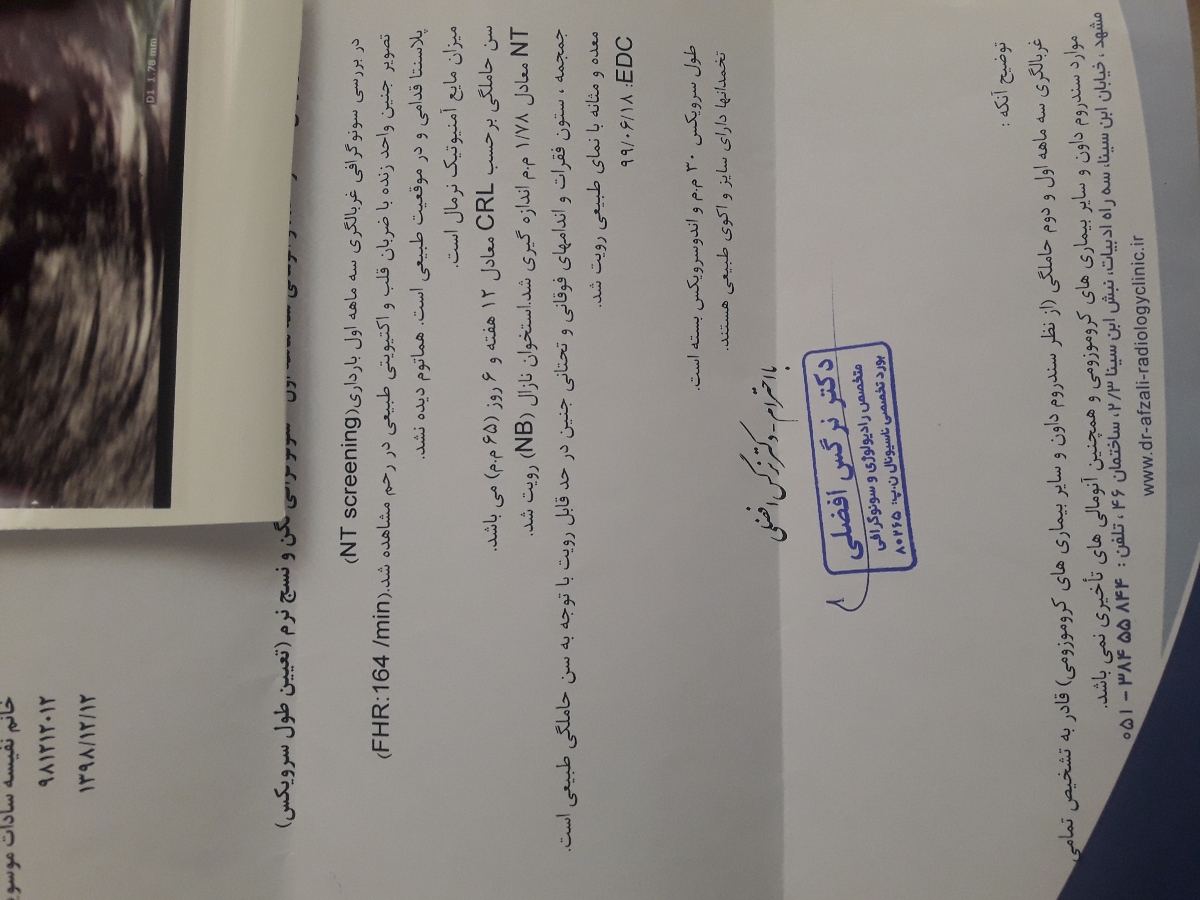 خانم نفیسه سادات موسوی
۹۸۱۲۱۲۰۱۲
۱۳۹۸/۱۲/۱۲
D1 1.78 mm
لگن و نسج نرم (تعیین طول سرویکس)
در بررسی سونوگرافی غربالگری سه ماهه اول بارداری(NT screening)
تصویر جنین واحد زنده با ضربان قلب و اکتیویتی طبیعی در رحم مشاهده شد.(FHR:164 /min)
پلاسنتا قدامی و در موقعیت طبیعی است. هماتوم دیده نشد.
میزان مایع آمنیوتیک نرمال است.
سن حاملگی برحسب CRL معادل ۱۲ هفته و ۶ روز (۶۵ م.م) می باشد.
NT معادل ۱/۷۸ م.م اندازه گیری شد.استخوان نازال (NB) رویت شد.
جمجمه ، ستون فقرات و اندامهای فوقانی و تحتانی جنین در حد قابل رویت با توجه به سن حاملگی طبیعی است.
معده و مثانه با نمای طبیعی رویت شد.
EDC: ۹۹/۰۶/۱۸
طول سرویکس ۳۰ م.م و اندوسرویکس بسته است.
تخمدانها دارای سایز و اکوی طبیعی هستند.
با احترام - دکتر نرگس افضلی
دکتر نرگس افضلی
متخصص رادیولوژی و سونوگرافی
بورد تخصصی ناسیونال ن.پ: ۸۰۲۶۵
توضیح آنکه :
غربالگری سه ماهه اول و دوم حاملگی (از نظر سندروم داون و سایر بیماری های کروموزومی) قادر به تشخیص تمامی
موارد سندروم داون و سایر بیماری های کروموزومی و همچنین آنومالی های تأخیری نمی باشد.
مشهد ، خیابان ابن سینا، سه راه ادبیات، نبش ابن سینا ۲/۳، ساختمان ۴۶ ، تلفن : ۸۴۴ ۵۵ ۳۸۴ - ۰۵۱
www.dr-afzali-radiologyclinic.ir